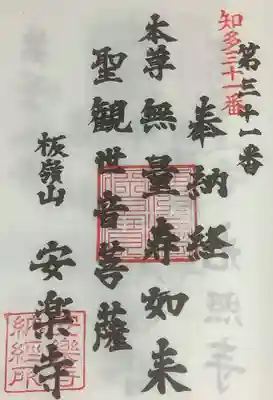 知多三十一番
第三十一番
奉納経
本尊無量寿如来
聖観世音菩薩
板嶺山
安楽寺
安樂寺
納經所